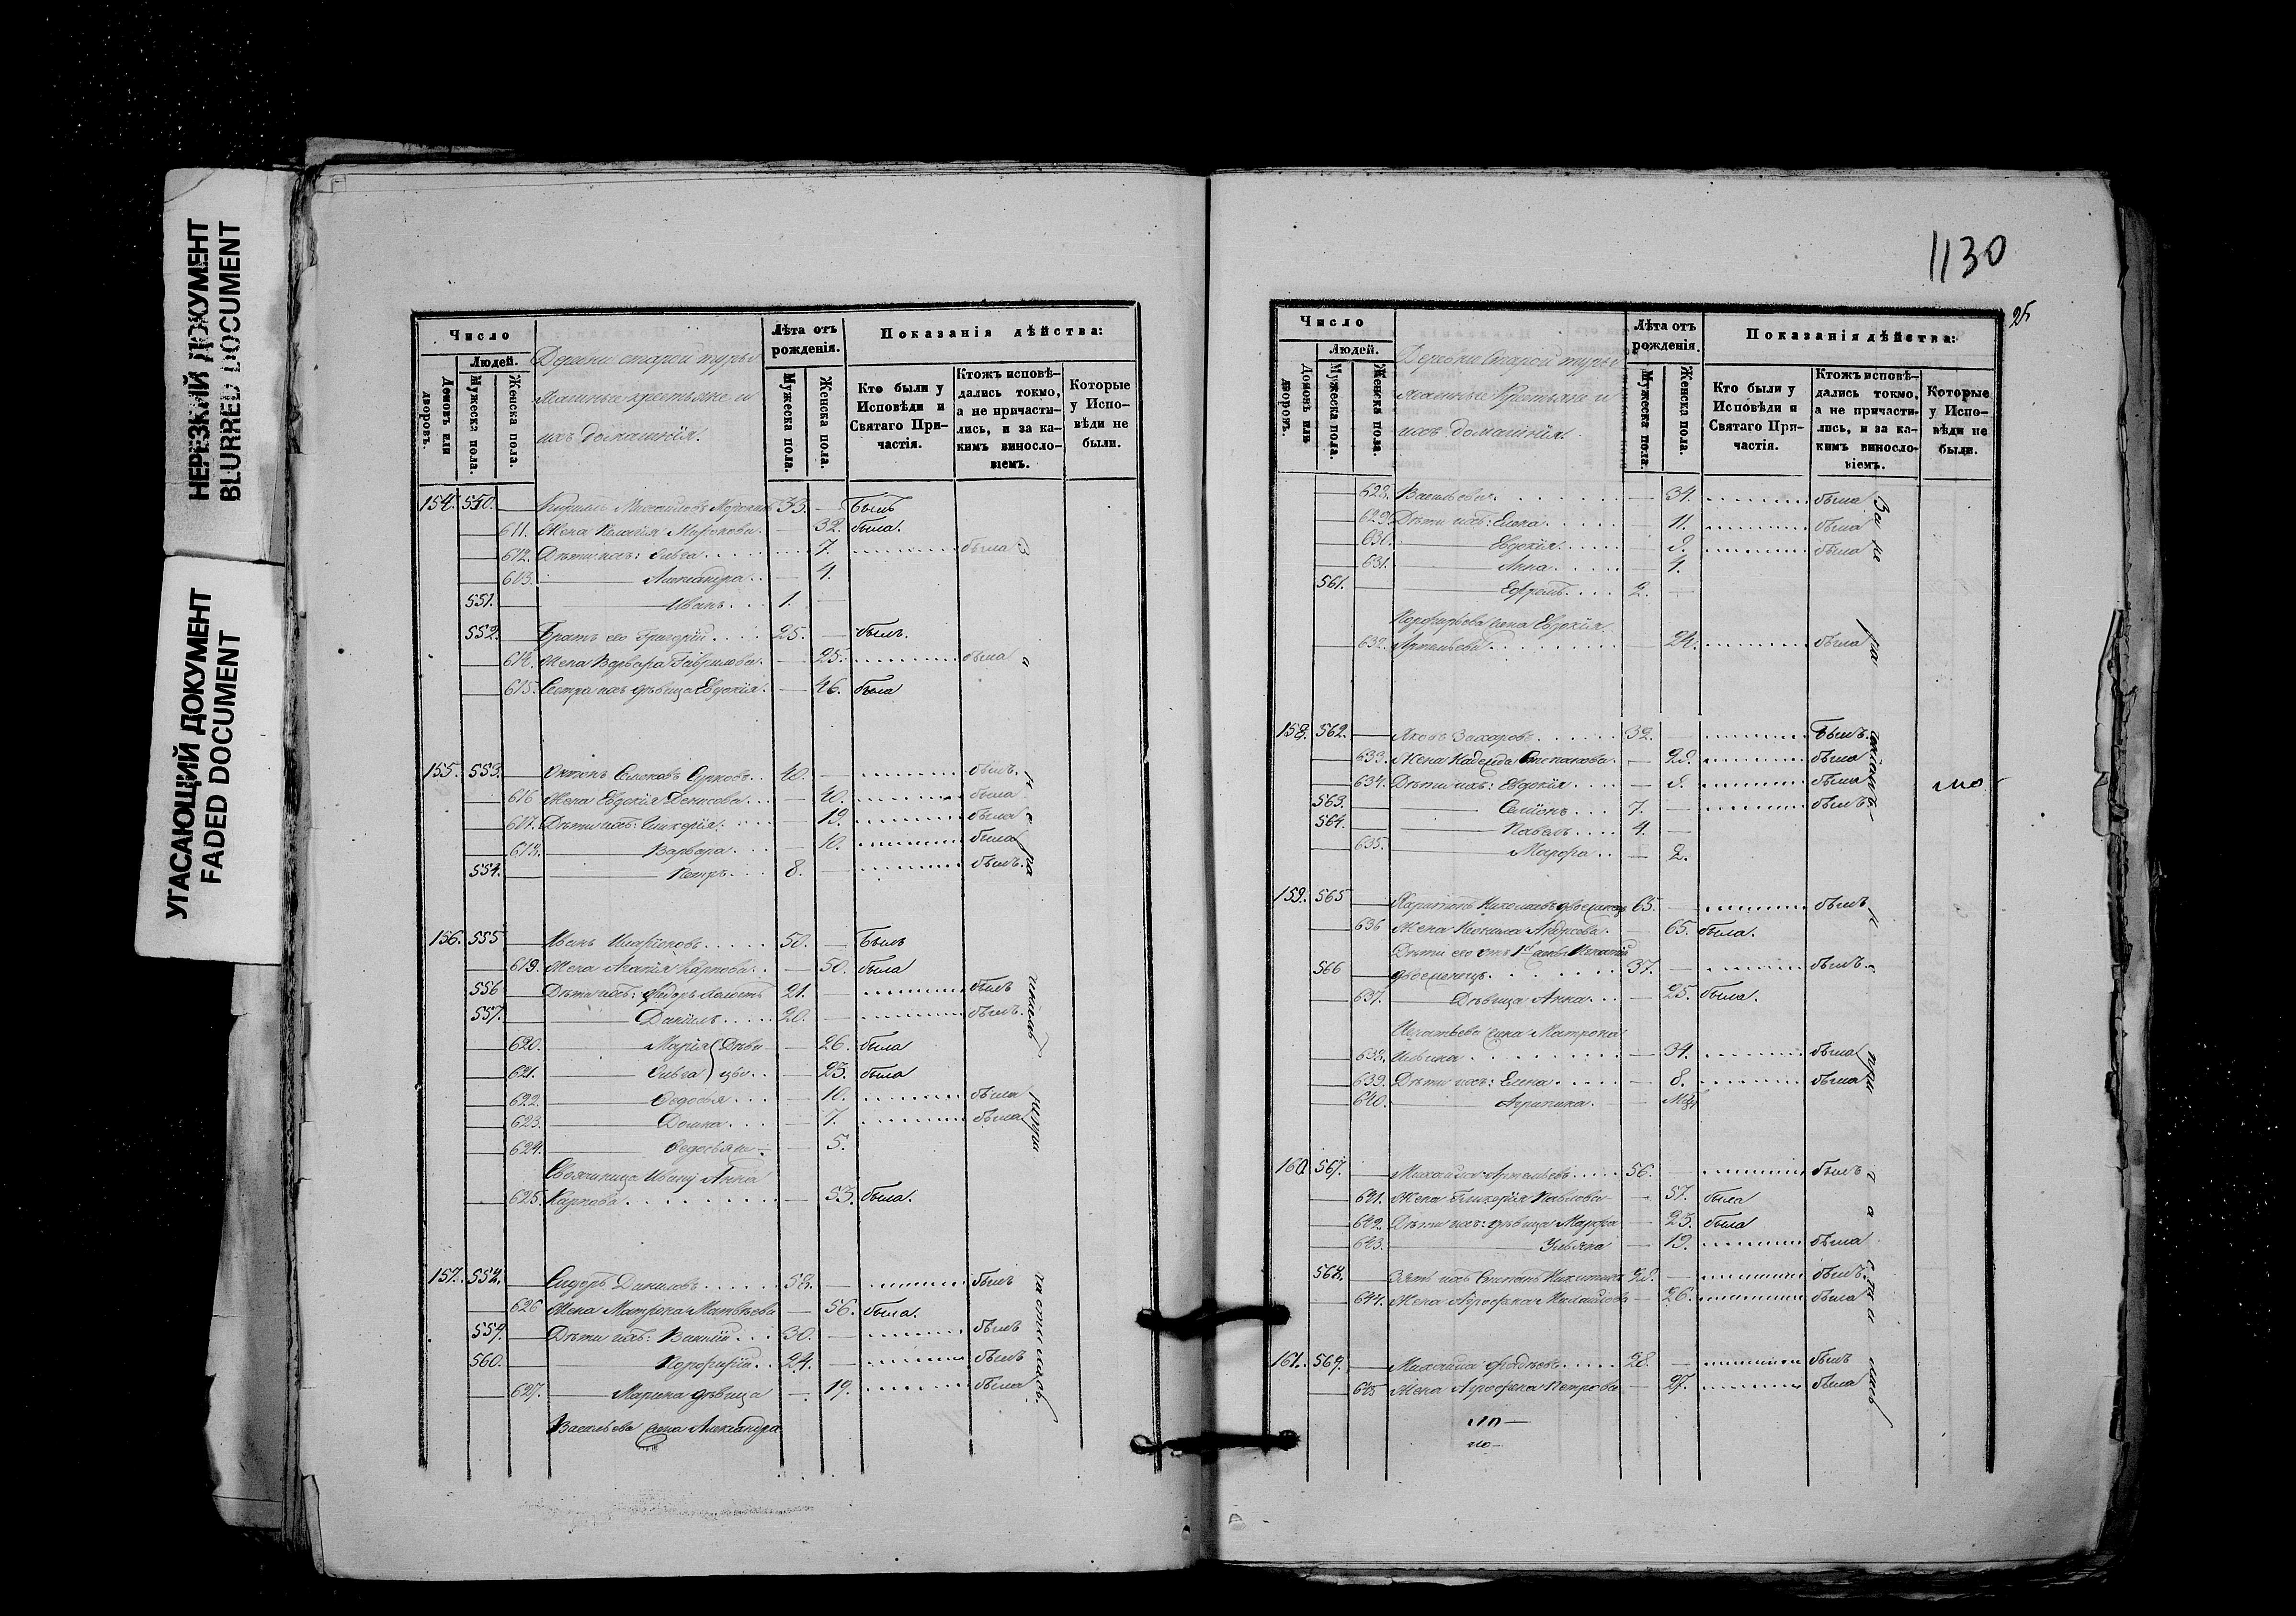 НЕРЕЗКИЙ ДОКУМЕНТ
BLURRED DOCUMENT
УГАСАЮЩИЙ ДОКУМЕНТ
FADED DOCUMENT
Число
Людей.
Домовъ или дворовъ.
Мужеска пола.
Женска пола.
Деревни старой
крестьяне и
ихъ домашнія.
Лѣта отъ рожденія.
Мужеска пола.
Женска пола.
Показанія дѣйства:
Кто были у Исповѣди и Святаго Причастія.
Ктожъ исповѣдались токмо, а не причастились, и за какимъ винословіемъ.
Которые у Исповѣди не были.
154. 550. Михайловъ 33. Былъ
611. Жена 32. была.
612. Дѣти ихъ: Ольга 7. была
613. Александра 4.
551. Иванъ 1.
552. Братъ его Григорій 25. былъ.
614. Жена Варвара Гаврилова 25. была
615. Сестра ихъ дѣвица Евдокія 46. была
155. 553. Антонъ 40. былъ.
616 Жена Евдокія Денисова 40. была
617. Дѣти ихъ: 19. была
618. Варвара 10. была
554. Петръ 8. былъ.
156. 555 Иванъ Иларіоновъ 50. Былъ
619. Жена Агапія Карпова 50. была
556 Дѣти ихъ: Ѳедоръ холостъ 21. былъ
557. Даніилъ 20. былъ.
620. Марія Дѣви 26. была
621. Ольга цы 23. была
622. Ѳедосья 10. была
623. Домна 7. была
624. 5.
Свояченица Ивану Анна
625. Карпова 53. была.
157. 558. Сидоръ Даниловъ 58. былъ
626 Жена Матрона Матвѣева 56. была.
559. Дѣти ихъ: Василій 30. былъ
560. Порфирій 24. былъ
627. Марина дѣвица 19. была
Васильева жена Александра
1130
25
Число
Людей.
Домовъ или дворовъ.
Мужеска пола.
Женска пола.
Деревни Старой
Крестьяне и
ихъ домашнія.
Лѣта отъ рожденія.
Мужеска пола.
Женска пола.
Показанія дѣйства:
Кто были у Исповѣди и Святаго Причастія.
Ктожъ исповѣдались токмо, а не причастились, и за какимъ винословіемъ.
Которые у Исповѣди не были.
628. Васильева 34. была
629 Дѣти ихъ: Елена 11. была
630. Евдокія 8. была
631. Анна 4.
561. Ефремъ 2.
Порфирьева жена Евдокія
632. Артемьева 24. была
158. 562. Яковъ Захаровъ 32. Былъ.
633. Жена Надежда Степанова 28. была
634. Дѣти ихъ: Евдокія 8. была
563. Семіонъ 7. былъ
564. Павелъ 4.
635. Марфа 2.
159. 565 Харитонъ 65. былъ
636 Жена 65. была.
Дѣти его отъ 1й жены Игнатій
566 37. былъ
637. Дѣвица Анна 25. была.
Игнатьева жена Матрона
638. Ильина 34. была
639. Дѣти ихъ: Елена 8. была
640. Агрипина
160. 567. Михаилъ Артемьевъ 56. былъ
641. Жена Гликерія Павлова 57. была
642. Дѣти ихъ: дѣвица Марфа 25. была
643. Ульяна 19. была
568. Зять ихъ Степанъ 28. былъ.
644. Жена Агрофена Михайлова 26. была
161. 569. Михаилъ 28. былъ
645 Жена Агрофена Петрова 27. была